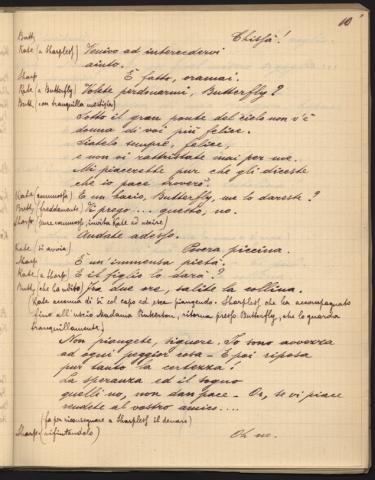 10
Butt. Chissà!
Kate (a Sharpless) Venivo ad intercedervi
aiuto.
Sharp. È fatto, oramai.
Kate (a Butterfly) Volete perdonarmi, Butterfly?
Butt. (con tranquilla mestizia)
Sotto il gran ponte del cielo non v'è
donna di voi più felice.
Siatelo sempre, felice,
e non vi rattristate mai per me.
Mi piacerebbe pur che gli diceste
che io pace troverò.
Kate (commossa) E un bacio, Butterfly, me lo dareste?
Butt. (freddamente) Vi prego.... questo, no.
Sharp. (pure commosso, invita Kate ad uscire)
Andate adesso.
Kate (si avvia) Povera piccina.
Sharp. È un'immensa pietà.
Kate (a Sharp.) E il figlio lo darà?
Butt. (che ha udito) fra due ore, salite la collina.
(Kate accenna di sì col capo ed esce piangendo. Sharpless, che ha accompagnato
fino all'uscio Madama Pinkerton, ritorna presso Butterfly, che lo guarda
tranquillamente)
Non piangete, signore. Io sono avvezza
ad ogni peggior cosa - E poi riposa
pur tanto la certezza!
La speranza ed il sogno
quelli no, non dan pace - Or, se vi piace
rendete al vostro amico....
(fa per riconsegnare a Sharpless il denaro)
Sharp. (rifiutandolo) Oh no.